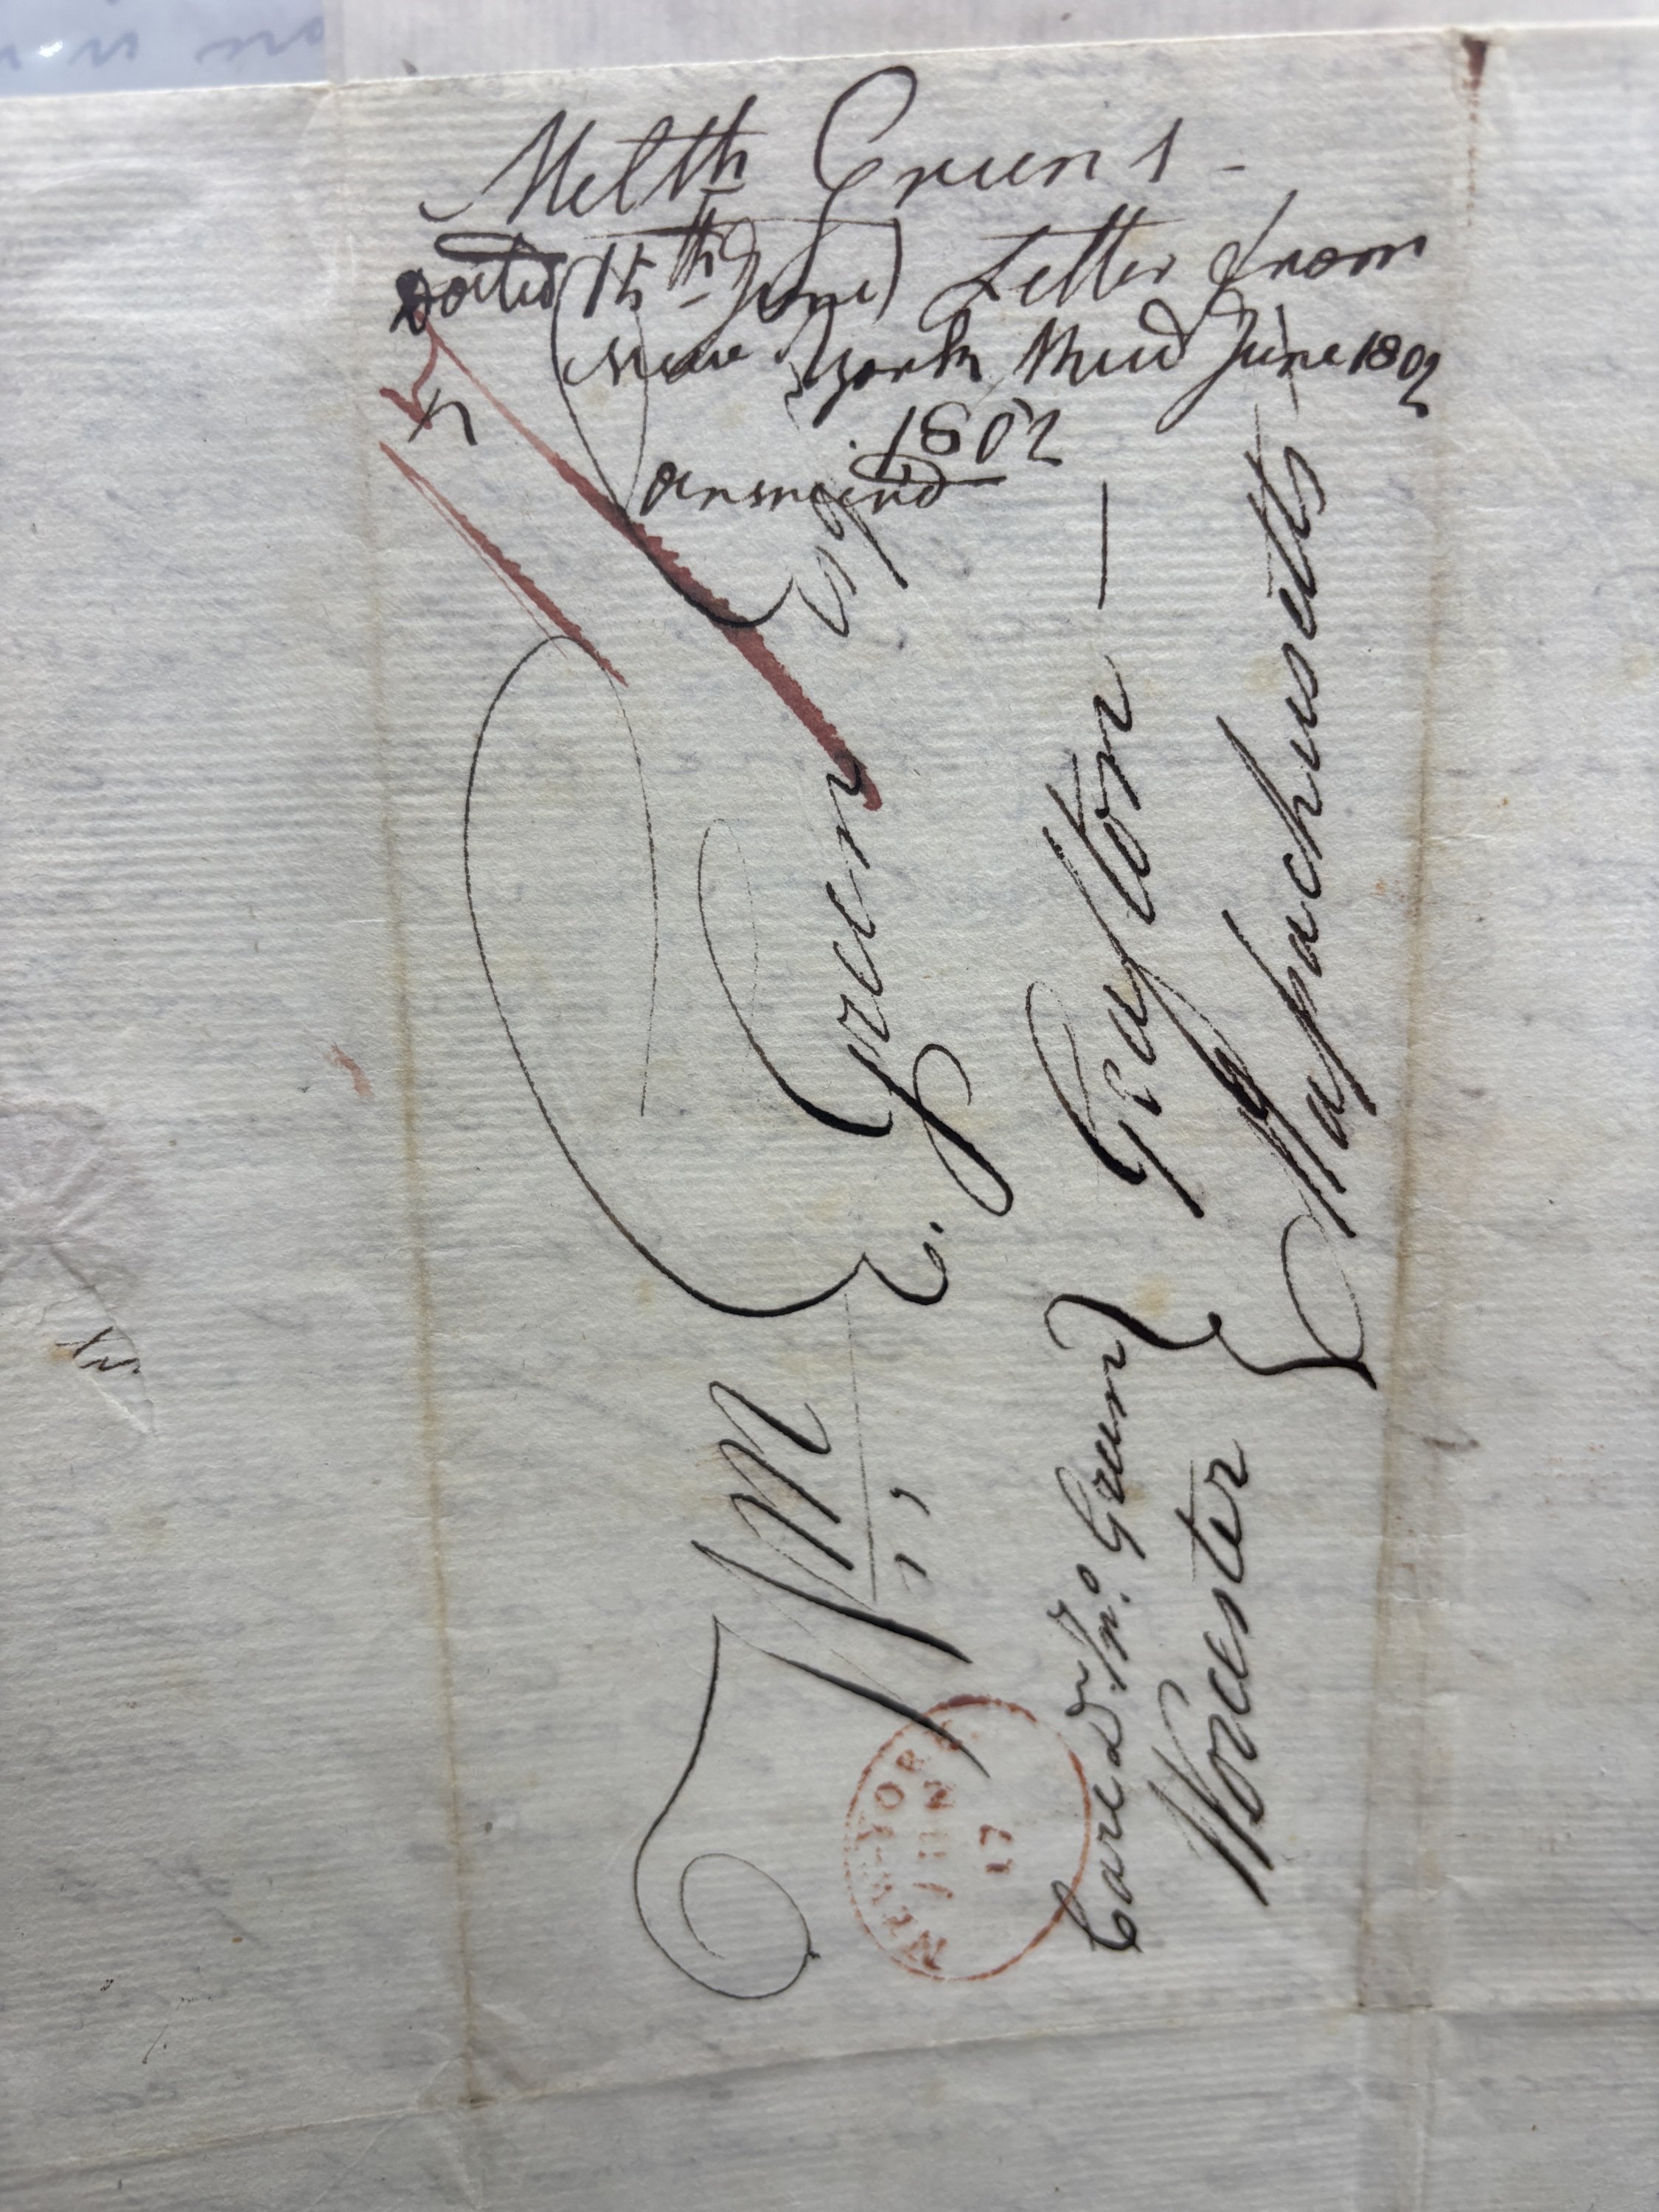 Melth Greens -
Dated (15th June) Letter from
New York Rec'd June 1802
1802
answer'd
Wm E. Green Esqr
Grafton —
Care Dr. Jno. Green }
Worcester } Massachusetts —
NEW-YORK
JUN
17